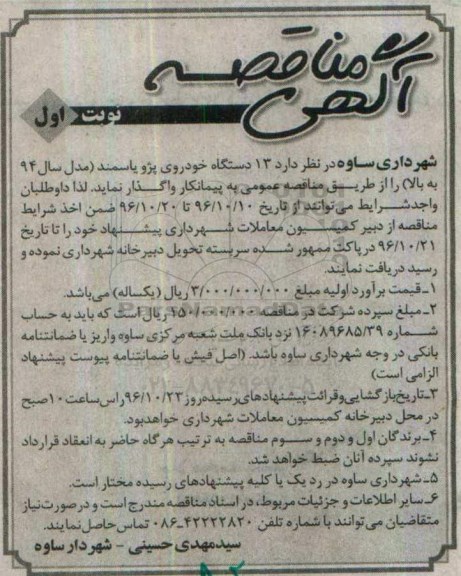 آگهی مناقصه
نوبت اول
شهرداری ساوه در نظر دارد ۱۳ دستگاه خودروی پژو یا سمند (مدل سال ۹۴
به بالا) را از طریق مناقصه عمومی به پیمانکار واگذار نماید. لذا داوطلبان
واجد شرایط می‌توانند از تاریخ ۹۶/۱۰/۱۰ تا ۹۶/۱۰/۲۰ ضمن اخذ شرایط
مناقصه از دبیر کمیسیون معاملات شهرداری پیشنهاد خود را تا تاریخ
۹۶/۱۰/۲۱ در پاکت ممهور شده سربسته تحویل دبیرخانه شهرداری نموده و
رسید دریافت نمایند.
۱ـ قیمت برآورد اولیه مبلغ ۳/۰۰۰/۰۰۰/۰۰۰ ریال (یکساله) می‌باشد.
۲ـ مبلغ سپرده شرکت در مناقصه ۱۵۰/۰۰۰/۰۰۰ ریال است که باید به حساب
شماره ۱۶۰۸۹۶۸۵/۳۹ نزد بانک ملت شعبه مرکزی ساوه واریز یا ضمانتنامه
بانکی در وجه شهرداری ساوه باشد. (اصل فیش یا ضمانتنامه پیوست پیشنهاد
الزامی است)
۳ـ تاریخ بازگشایی و قرائت پیشنهادهای رسیده روز ۹۶/۱۰/۲۳ راس ساعت ۱۰ صبح
در محل دبیرخانه کمیسیون معاملات شهرداری خواهد بود.
۴ـ برندگان اول و دوم و سوم مناقصه به ترتیب هرگاه حاضر به انعقاد قرارداد
نشوند سپرده آنان ضبط خواهد شد.
۵ـ شهرداری ساوه در رد یک یا کلیه پیشنهادهای رسیده مختار است.
۶ـ سایر اطلاعات و جزئیات مربوط، در اسناد مناقصه مندرج است و در صورت نیاز
متقاضیان می‌توانند با شماره تلفن ۴۲۲۲۲۸۲۰-۰۸۶ تماس حاصل نمایند.
سید مهدی حسینی - شهردار ساوه